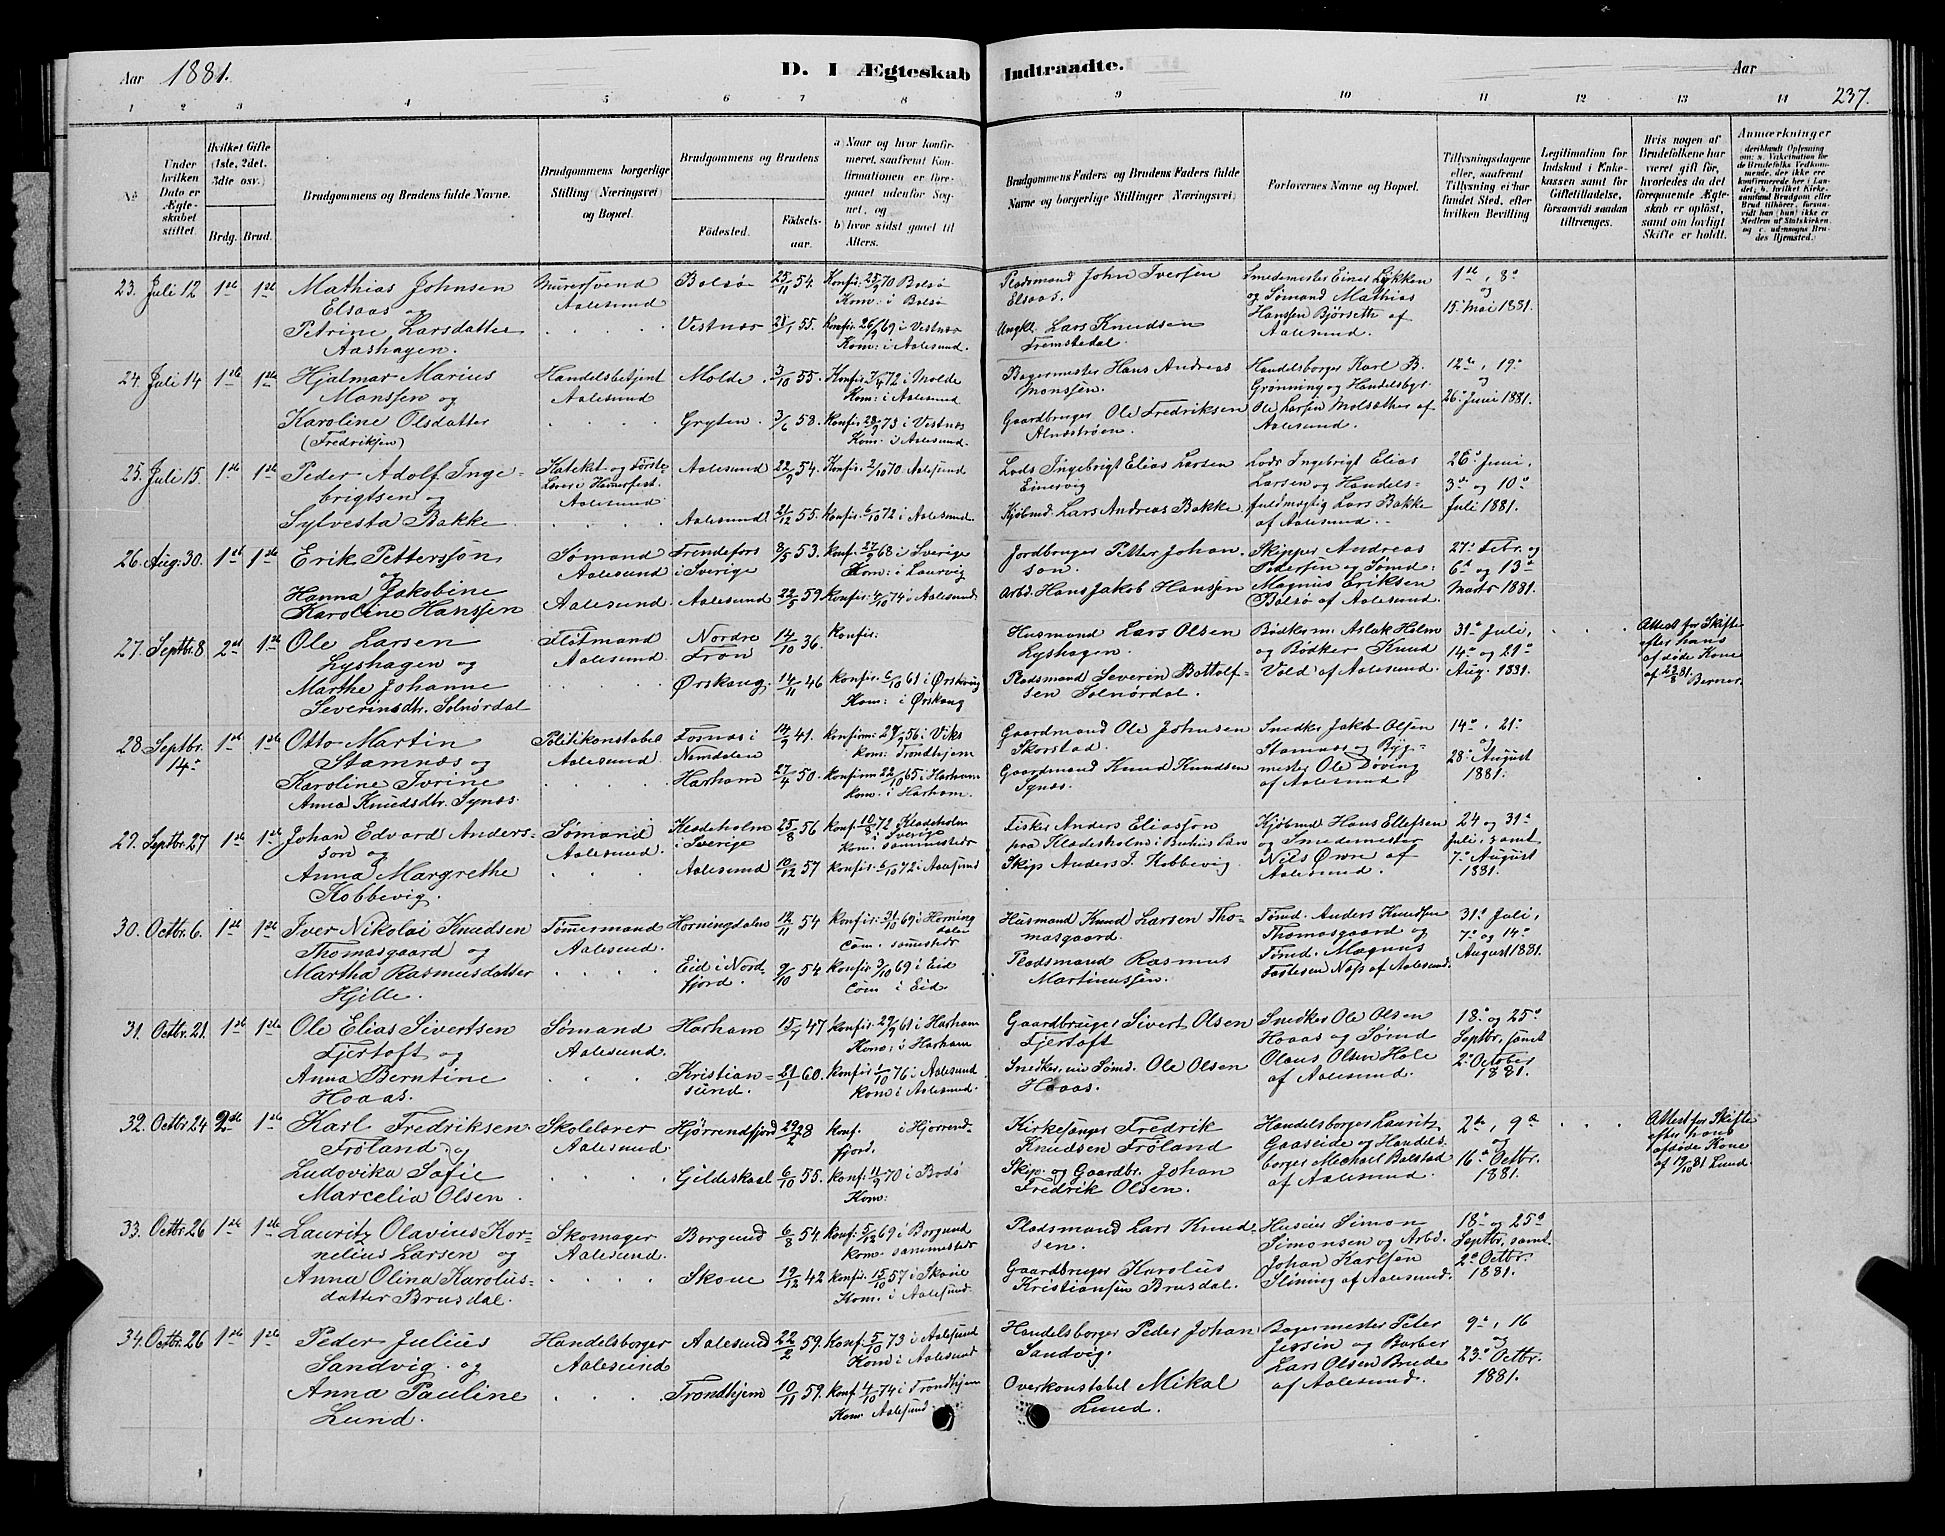 Aar 1881.
D. I Ægteskab Indtraadte.
Aar
237.
1 2 3 4 5 6 7 8 9 10 11 12 13 14
No.
Under hvilken Dato er Ægteskabet stiftet.
Hvilket Gifte (1ste, 2det, 3die osv.)
Brdg. Brud.
Brudgommens og Brudens fulde Navne.
Brudgommens borgerlige Stilling (Næringsvei) og Bopæl.
Brudgommens og Brudens
Fødested.
Fødselsaar.
a) Naar og hvor konfirmeret, saafremt Konfirmationen er foregaaet udenfor Sognet, og
b) hvor sidst gaaet til Alters.
Brudgommens Faders og Brudens Faders fulde Navne og borgerlige Stillinger (Næringsvei)
Forlovernes Navne og Bopæl.
Tillysningsdagene eller, saafremt Tillysning ei har fundet Sted, efter hvilken Bevilling
Legitimation for Indskud i Enkekassen samt for Giftetilladelse, forsaavidt saadan tiltrænges.
Hvis nogen af Brudefolkene har været gift før, hvorledes da det foregaaende Ægteskab er opløst, samt om lovligt Skifte er holdt.
Anmærkninger
23. Juli 12 1ste 1ste Mathias Johnsen Elsaas og Murersvend Aalesund Bolsø 25/11 54. Konfir. 25/9 70 Bolsø Kom: i Bolsø Pladsmand John Iversen Elsaas. Smedemester Einer Lykken og Sømand Mathias Hanssen Bjørseth af Aalesund. 1ste, 8de og 15. Mai 1881.
Petrine Larsdatter Aashagen. Vestnæs 21/1 55. Konfir 26/9 69 i Vestnæs Kom: i Aalesund. Ungkl. Lars Knudsen Fremstedal.
24. Juli 14 1ste 1ste Hjalmar Marius Monssen og Handelsbetjent Aalesund Molde 3/10 55. Konfir. 7/4 72 i Molde Kom: i Aalesund Bagermester Hans Andreas Monssen. Handelsborger Karl B. Grønning og Handelsbgr. Ole Larsen Molsæther af Aalesund. 12te, 19de og 26de Juni 1881.
Karoline Olsdatter (Fredriksen) Gryten 3/6 58. Konfir. 28/9 73 i Vestnæs Kom: i Aalesund. Gaardbruger Ole Fredriksen Alnestrøen.
25. Juli 15. 1ste 1ste Peder Adolf Ingebrigtsen og Kateket og Første Lærer i Hamerfest. Aalesund Aalesund 22/9 54. Konfir. 2/10 70 Aalesund Lods Ingebrigt Elias Larsen Einervig Lods Ingebrigt Elias Larsen og Handelsfuldmægtig Lars Bakke af Aalesund. 26de Juni, 3de og 10de Juli 1881.
Sylvesta Bakke Aalesund 21/12 55. Konfir. 6/10 72 i Aalesund. Kjøbmd. Lars Andreas Bakke
26. Aug: 30. 1ste 1ste Erik Pettersson og Sømand Aalesund Frendefors i Sverige 8/5 53. Konf. 27/9 68 i Sverige Kom: i Laurvig Jordbruger Petter Johanson. Skipper Andreas Pedersen og Sømd: Magnus Eriksen Bolsø af Aalesund. 27de Febr. og 6te og 13de Marts 1881.
Hanna Jakobine Karoline Hanssen Aalesund. Aalesund 22/5 59. Konfir. 4/10 74 i Aalesund Arbd. Hans Jakob Hanssen
27. Septbr. 8 2den 1ste Ole Larsen Lyshagen og Fløtmand Aalesund. Nordre Fron 14/10 36. Konfir: Husmand Lars Olsen Lyshagen. Bødkerm. Aslak Holm og Bødker Knud Vold af Aalesund. 31de Juli, 14de og 21de Aug. 1881. Attest for Skifte efter hans afdøde Kone af 22/8 81. Berner.
Marthe Johanne Severinsdtr. Solnørdal Ørskoug 14/11 46 Konfir. 6/10 61 i Ørskoug Kom: i Ørskoug Pladsmand Severin Bottolfsen Solnørdal.
28. Septbr. 14de 1ste 1ste Otto Martin Stamnæs og Politikonstabel Aalesund. Fosnæs i Namdalen 14/9 41. Konfirm: 29/9 56 i Viks Kom: Trondhjem Gaardmand Ole Johnsen Skorstad. Snedker Jakob Olsen Stamnæs og Bygmester Ole Døving af Aalesund. 14de, 21de og 28de August 1881.
Karoline Ivrine Anna Knudsdtr. Synæs. Harham 27/4 50. Konfirm 22/10 65 i Harham Kom. i Harham. Gaardmand Knud Knudsen Synæs.
29. Septbr. 27 1ste 1ste Johan Edvard Andersson og Sømand Aalesund. Kladeholm i Sverige 25/8 56 Konf. 10/8 72 Kladeholm i Sverige Kom: sammesteds Fisker Anders Eliasson fra Kladesholm i Bohus Len Kjøbmd Hans Ellefsen og Smedemester Nils Ørn af Aalesund. 24 og 31de Juli, samt 7de August 1881.
Anna Margrethe Kobbevig. Aalesund 10/12 57 Konfir. 6/10 72 i Aalesund Skip. Anders J. Kobbevig.
30. Octbr. 6. 1ste 1ste Iver Nikolai Knudsen Thomasgaard og Tømmermand Aalesund. Horningdalen 12/11 54 Konfir: 31/10 69 i Horningdalen Com. sammesteds Husmand Knud Larsen Thomasgaard. Tømd. Anders Knudsen Thomasgaard og Tømd. Magnus Fostesen Næss af Aalesund. 31de Juli, 7de og 14de August 1881.
Martha Rasmusdatter Hjelle. Eid i Nordfjord. 9/10 54 Konfir. 3/10 69 i Eid Com i Eid. Pladsmand Rasmus Martinussen.
31. Octbr. 21. 1ste 1ste Ole Elias Sivertsen Fjertoft og Sømand Aalesund. Harham 15/7 47 Konfir: 29/9 61 i Harham Kom: i Harham Gaardbruger Sivert Olsen Fjertoft Snedker Ole Olsen Hoaas og Sømd Olaus Olsen Hole af Aalesund. 18de og 25de Septbr. samt 2de October 1881.
Anna Berntine Hoaas. Kristiansund. 21/1 60. Konfir. 1/10 76 i Aalesund Kom i Aalesund. Snedker, nu Sømd. Ole Olsen Hoaas.
32. Octbr. 24 2den 1ste Karl Fredriksen Frøland og Skolelærer Aalesund. Hjørrendfjord 29/2 28 Konf. i Hjørrendfjord. Kirkesanger Fredrik Knudsen Frøland Handelsborger Lauritz Gaaseide og Handelsborger Michael Balstad af Aalesund. 2den, 9de og 16de Octbr. 1881. Attest for Skifte efter hans afdøde Kone af 19/10 81 Lund.
Ludovika Sofie Marcelia Olsen. Gildeskaal 6/10 55. Konf. 11/9 70 i Bodø Kom: Skip. og Gaardbr. Johan Fredrik Olsen.
33. Octbr. 26 1ste 1ste Lauritz Olavius Kornelius Larsen og Skomager Aalesund. Borgund 6/8 54. Konf. 5/12 69 i Borgund Kom. sammesteds Pladsmand Lars Knudsen. Huseier Simon Simonsen og Arbd. Johan Karlsen Slining af Aalesund. 18de og 25de Septbr. samt 2de Octbr. 1881.
Anna Olina Karolusdatter Brusdal. Skoue 19/12 42 Konfir. 15/10 57 i Skoue Kom. i Aalesund. Gaardbruger Karolus Kristiansen Brusdal.
34. Octbr. 26 1ste 1ste Peder Julius Sandvig og Handelsborger Aalesund Aalesund 22/2 59. Konf. 5/10 73 i Aalesund Kom i Aalesund Handelsborger Peder Johan Sandvig. Bagermester Peter Jessen og Barber Lars Olsen Brude af Aalesund. 9de, 16 og 23de Octbr. 1881.
Anna Pauline Lund. Trondhjem 10/11 59. Konf 4/10 74 i Trondhjem Kom Aalesund. Overkonstabel Mikal Lund.